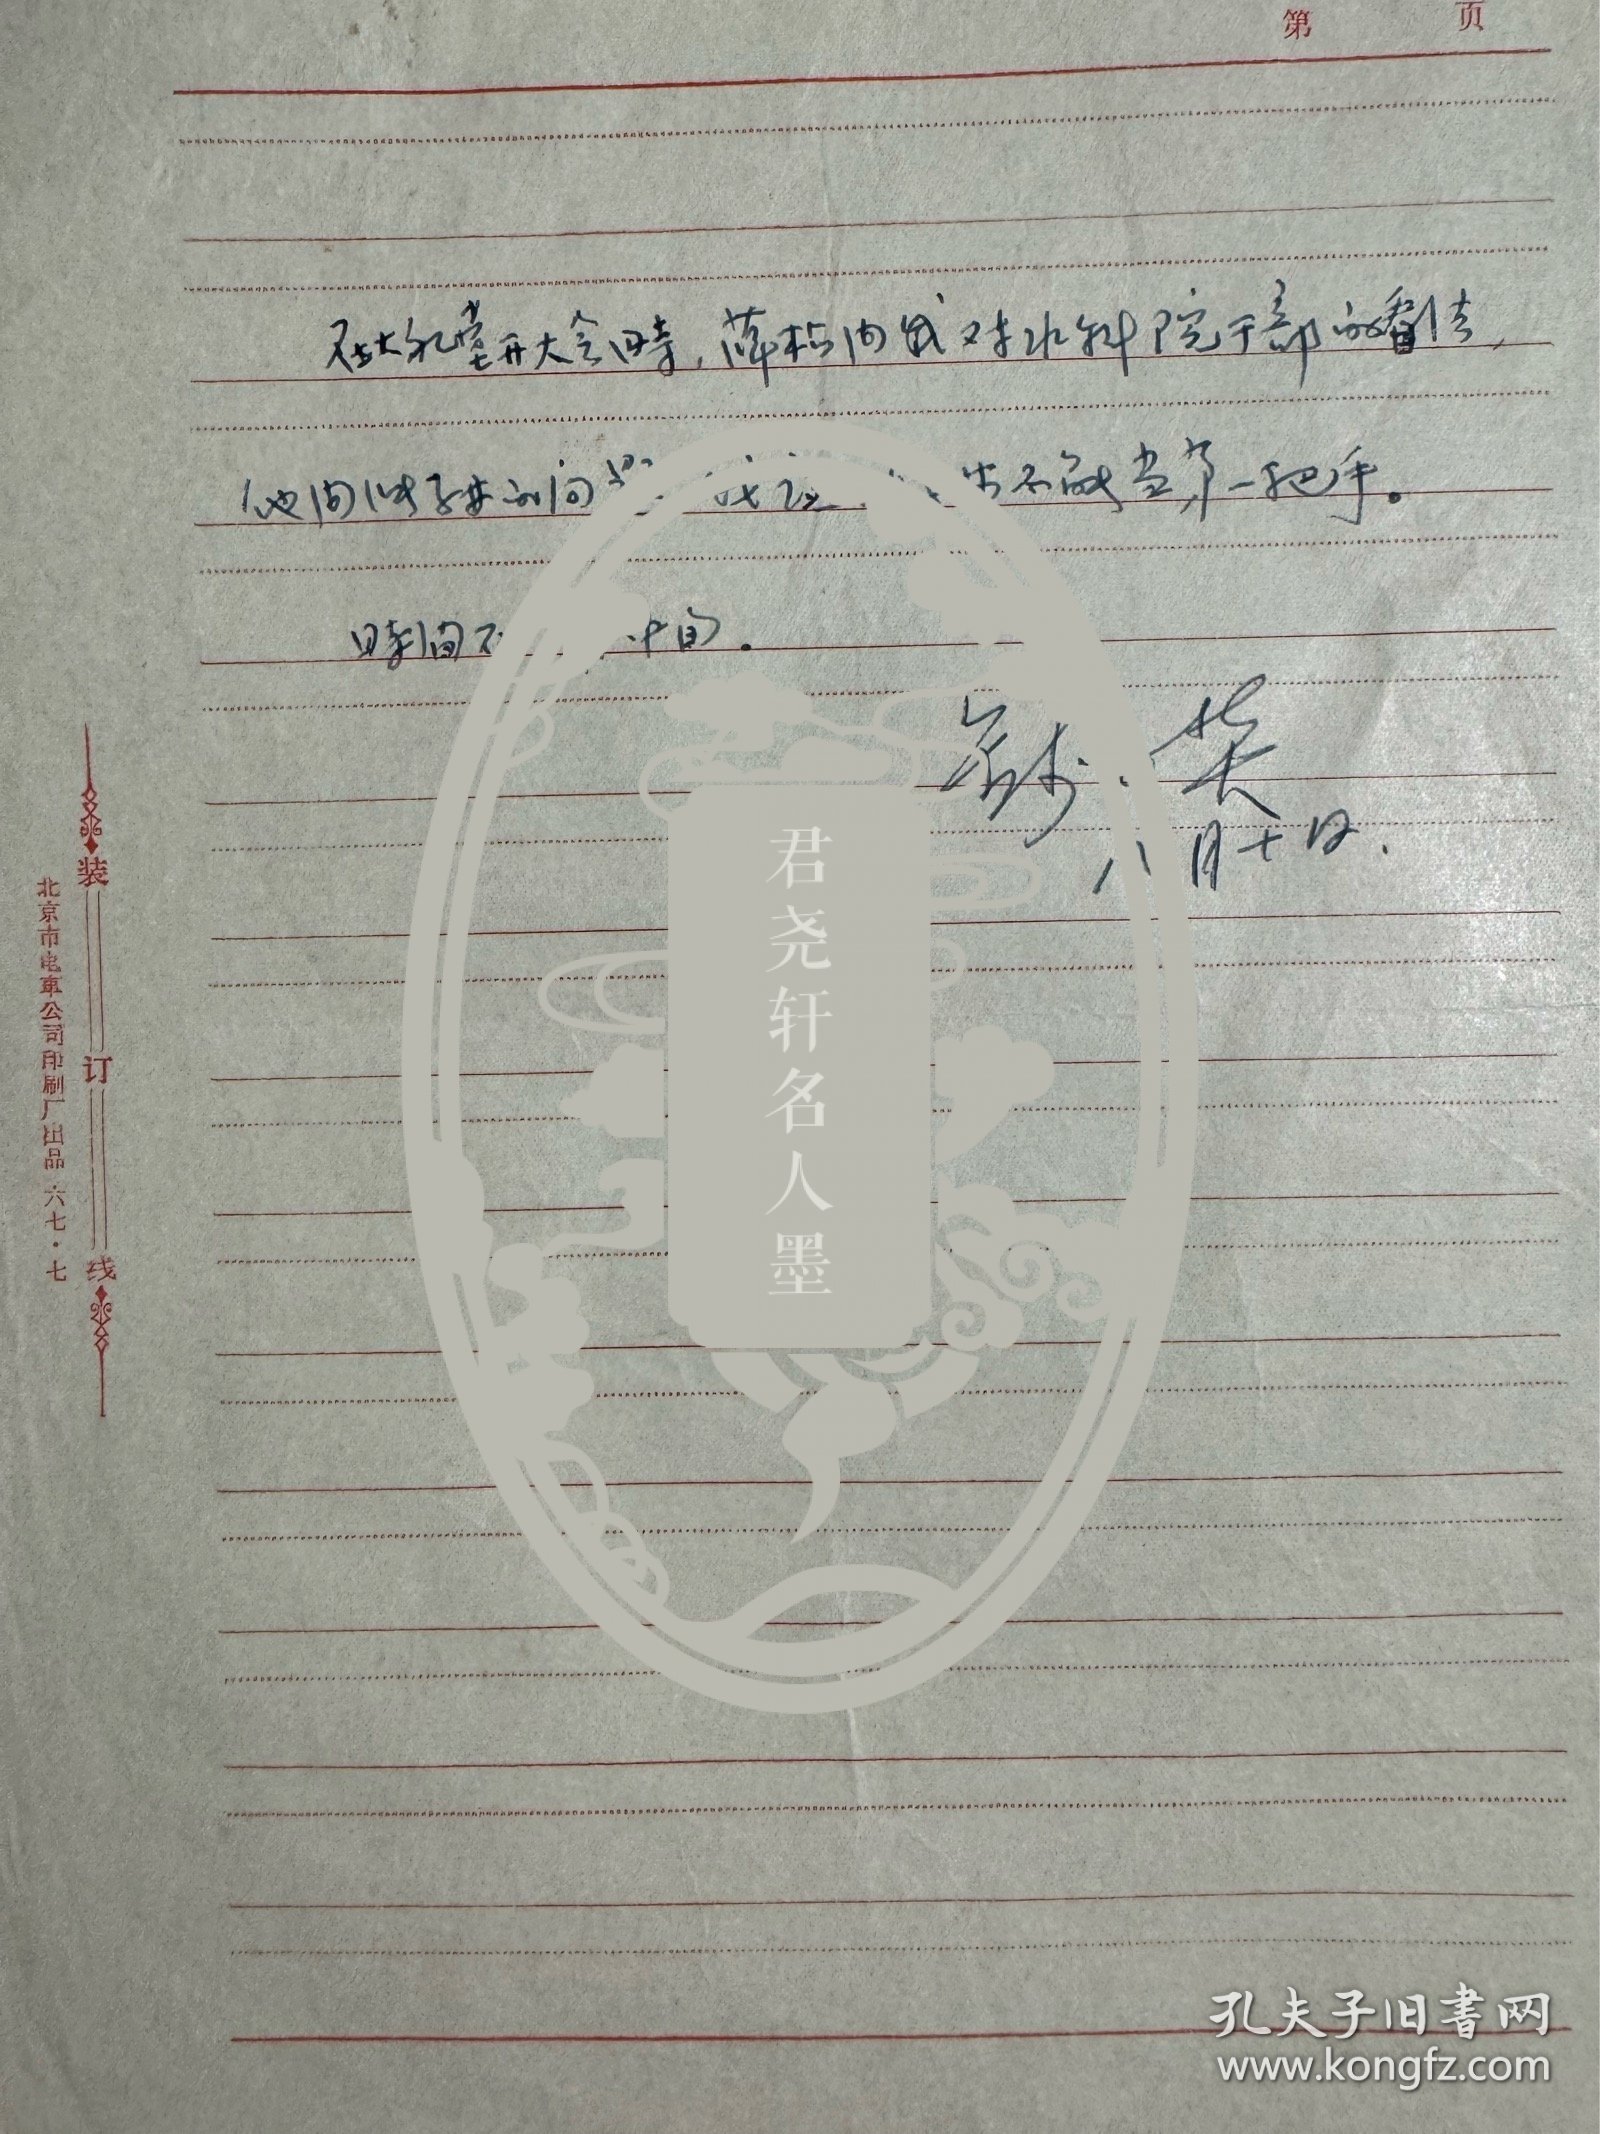 第 页
在大礼堂开大会时，薛松问我对水科院干部的看法，
他问张子林的问 不能当第一把手。
时间 中旬。
八月十日.
装订线
北京市电车公司印刷厂出品 六七·七
君尧轩名人墨
孔夫子旧书网
www.kongfz.com